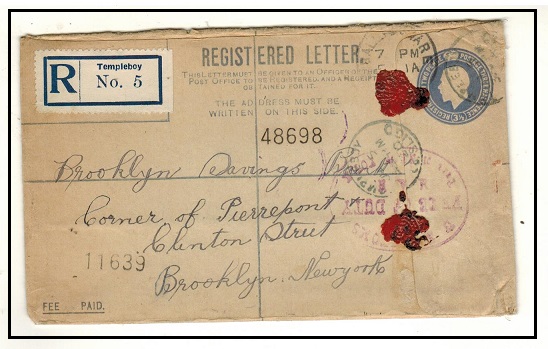 REGISTERED LETTER.
THIS LETTER MUST BE GIVEN TO AN OFFICER OF THE
POST OFFICE TO BE REGISTERED, AND A RECEIPT
OBTAINED FOR IT.
THE ADDRESS MUST BE
WRITTEN ON THIS SIDE.
R
Templeboy
No. 5
7 PM
48698
Brooklyn Savings Bank
Corner of Pierrepont
Clinton Street
Brooklyn, Newyork
11639
FEE PAID.